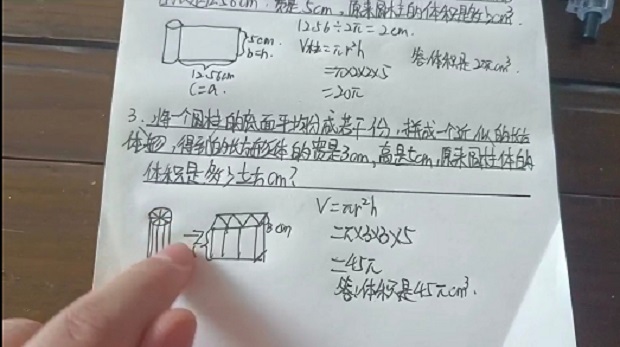 12.56cm. 宽是5cm, 原来圆柱的体积是多少cm³?
12.56÷2π=2cm.
5cm
b=h
12.56cm
C=a
V柱=πr²h
=π×2×2×5
=20π
答:体积是20πcm³.
3. 将一个圆柱的底面平均份成若干份, 拼成一个近似的长方
体形, 得到的长方形体的宽是3cm, 高是5cm, 原来圆柱体的
体积是多少立方cm?
3cm
V=πr²h
=π×3×3×5
=45π
答:体积是45πcm³.